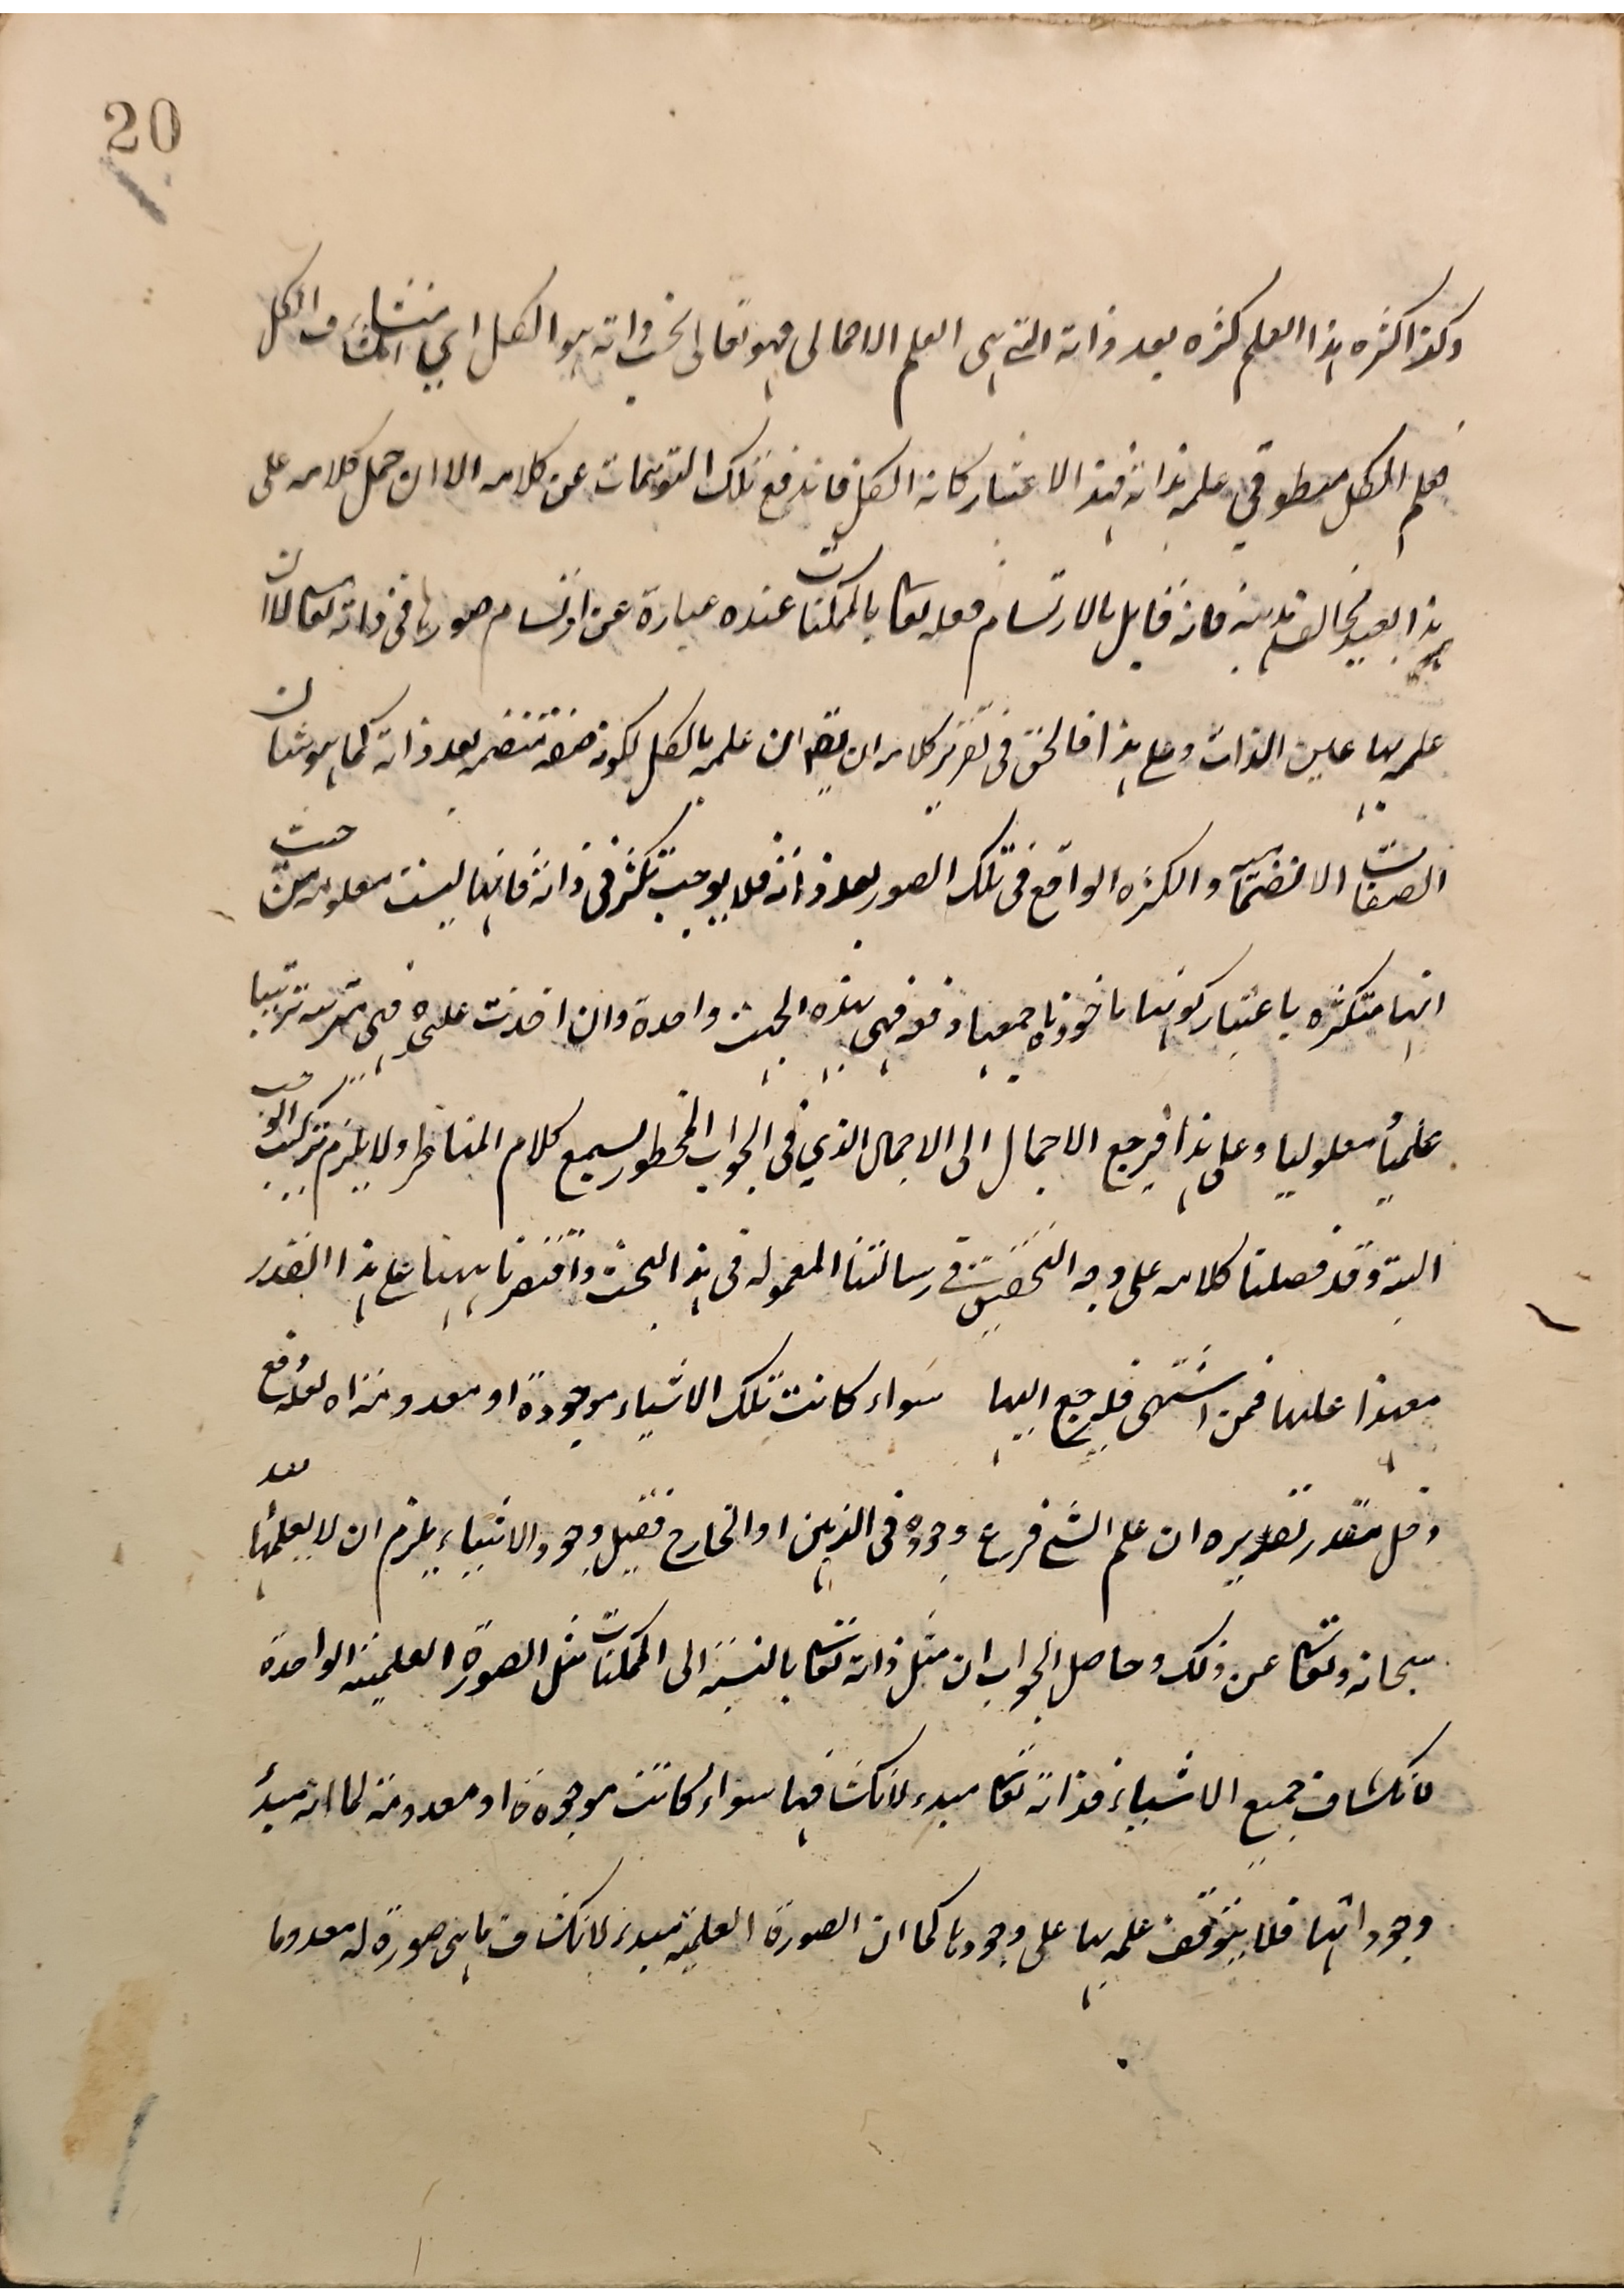 20
وكذا كثره هذا العلم كثره بعد ذاته التي هي العلم الاجمالي فهو تعالى بحسب ذاته هو الكل اي منشا انكشاف الكل
فعلم الكل منطو في علمه بذاته فبهذا الاعتبار كانه الكل فاندفع تلك التوهمات عن كلامه الا ان حمل كلامه على
هذا بعيد مخالف لمذهبه فانه قايل بالارتسام فعلمه تعا بالممكنات عنده عبارة عن ارتسام صورها في ذاته تعا لا ان
علمه بها عين الذات وعلى هذا فالحق في تقرير كلامه ان يقم ان علمه بالكل لكونه صفه منضمه بعد ذاته كما هو شان
الصفات الانضمامية والكثره الواقع في تلك الصور بعد ذاته فلا يوجب تكثر في ذاته فانها ليست معلومه من حيث
انها متكثره باعتبار كونها ماخوذه جميعا دفعه فهي بهذه الحيث واحدة وان اخذت علحده فهي مترتبه ترتيبا
عليا معلوليا وعلى هذا فيرجع الاجمال الى الاجمال الذي في الجواب المخطور لسمع كلام المناظر ولا يلزم تركيب الواجب
البتة وقد فصلنا كلامه على وجه التحقيق في رسالتنا المعموله في هذا البحث واقتصرنا ههنا على هذا القدر
معهذا عليها فمن اشتهى فليرجع اليها سواء كانت تلك الاشياء موجودة او معدومة اه لعله دفع
دخل مقدر تقديره ان علم الشئ فرع وجوده في الذهن او الخارج فقبل وجود الاشياء يلزم ان لا يعلمها بعد
سبحانه وتعا عن ذلك وحاصل الجواب ان مثل ذاته تعا بالنسبة الى الممكنات مثل الصورة العلمية الواحدة
لانكشاف جميع الاشياء فذاته تعا مبدء لانكشافها سواء كانت موجودة او معدومة كما انه مبدأ
وجوداتها فلا يتوقف علمه بها على وجودها كما ان الصورة العلمية مبدء لانكشاف ما هي صورة له معدوما